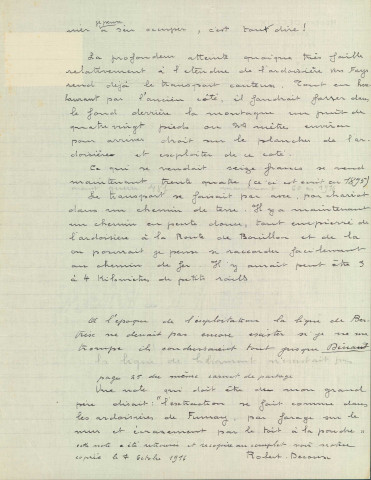 je pense
nier à s'en occuper, c'est tout dire!
La profondeur atteinte quoique très faible
relativement à l'étendue de l'ardoisière du Fays
rend déjà le transport couteux. Tout en
par l'ancien côté, il faudrait passer dans
le fond derrière la montagne un puit de
quatre vingt pieds ou 24 mètre environ
pour arriver droit sur le planche de l'ar-
doisière et exploiter de ce coté.
Ce qui se vendait seize francs se vend
maintenant trente quatre (ceci est écrit en 1875)
Le transport se faisait par axe, par chariot
dans un chemin de terre. Il y a maintenant
un chemin en pente douce, tout empierré de
l'ardoisière à la Route de Bouillon et de là
on pourrait je pense se raccorder facilement
au chemin de fer. Il y aurait peut être 3
à 4 Kilomètres de petits rails
A l'époque de l'exploitation la ligne de Ber-
trix ne devait pas encore exister si je ne me
trompe ils conduisaient tout jusque Dinant
page 25 du même carnet de partage
Une note qui doit être de mon grand
père disait: "l'extraction se fait comme dans
les ardoisières de Fumay, par forage sur le
mur et écrasement par le toit à la poudre "
cette note a été retrouvée et recopiée au complet voir notre
copie le 7 Octobre 1976 Robert